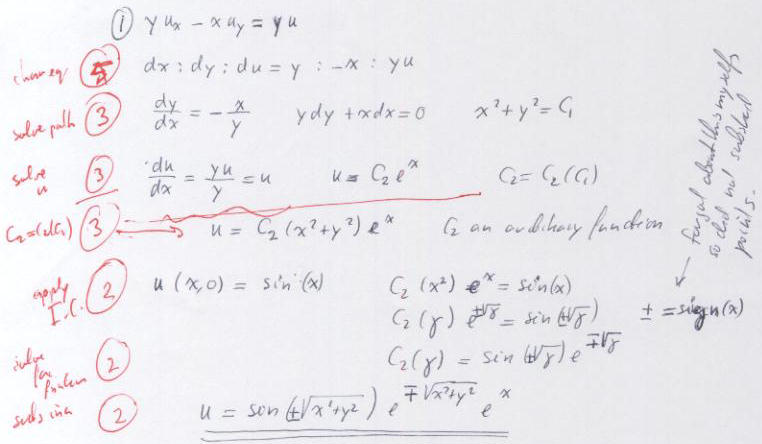 ① y u_x - x u_y = y u
char eq 5 dx : dy : du = y : -x : yu
solve path 3 dy/dx = - x/y ydy + xdx = 0 x² + y² = C₁
solve u 3 du/dx = yu/y = u u = C₂ e^x C₂ = C₂(C₁)
C₂=C₂(C₁) 3 u = C₂ (x²+y²) e^x C₂ an arbitrary function
apply I.C. 2 u(x,0) = sin(x) C₂ (x²) e^x = sin(x)
C₂(γ) e^{±√γ} = sin(±√γ) ± = sign(x)
solve for 2 C₂(γ) = sin(±√γ) e^{∓√γ}
subs in 2 u = sin(±√(x²+y²)) e^{∓√(x²+y²)} e^x
forgot about this myself
so did not substract
points.